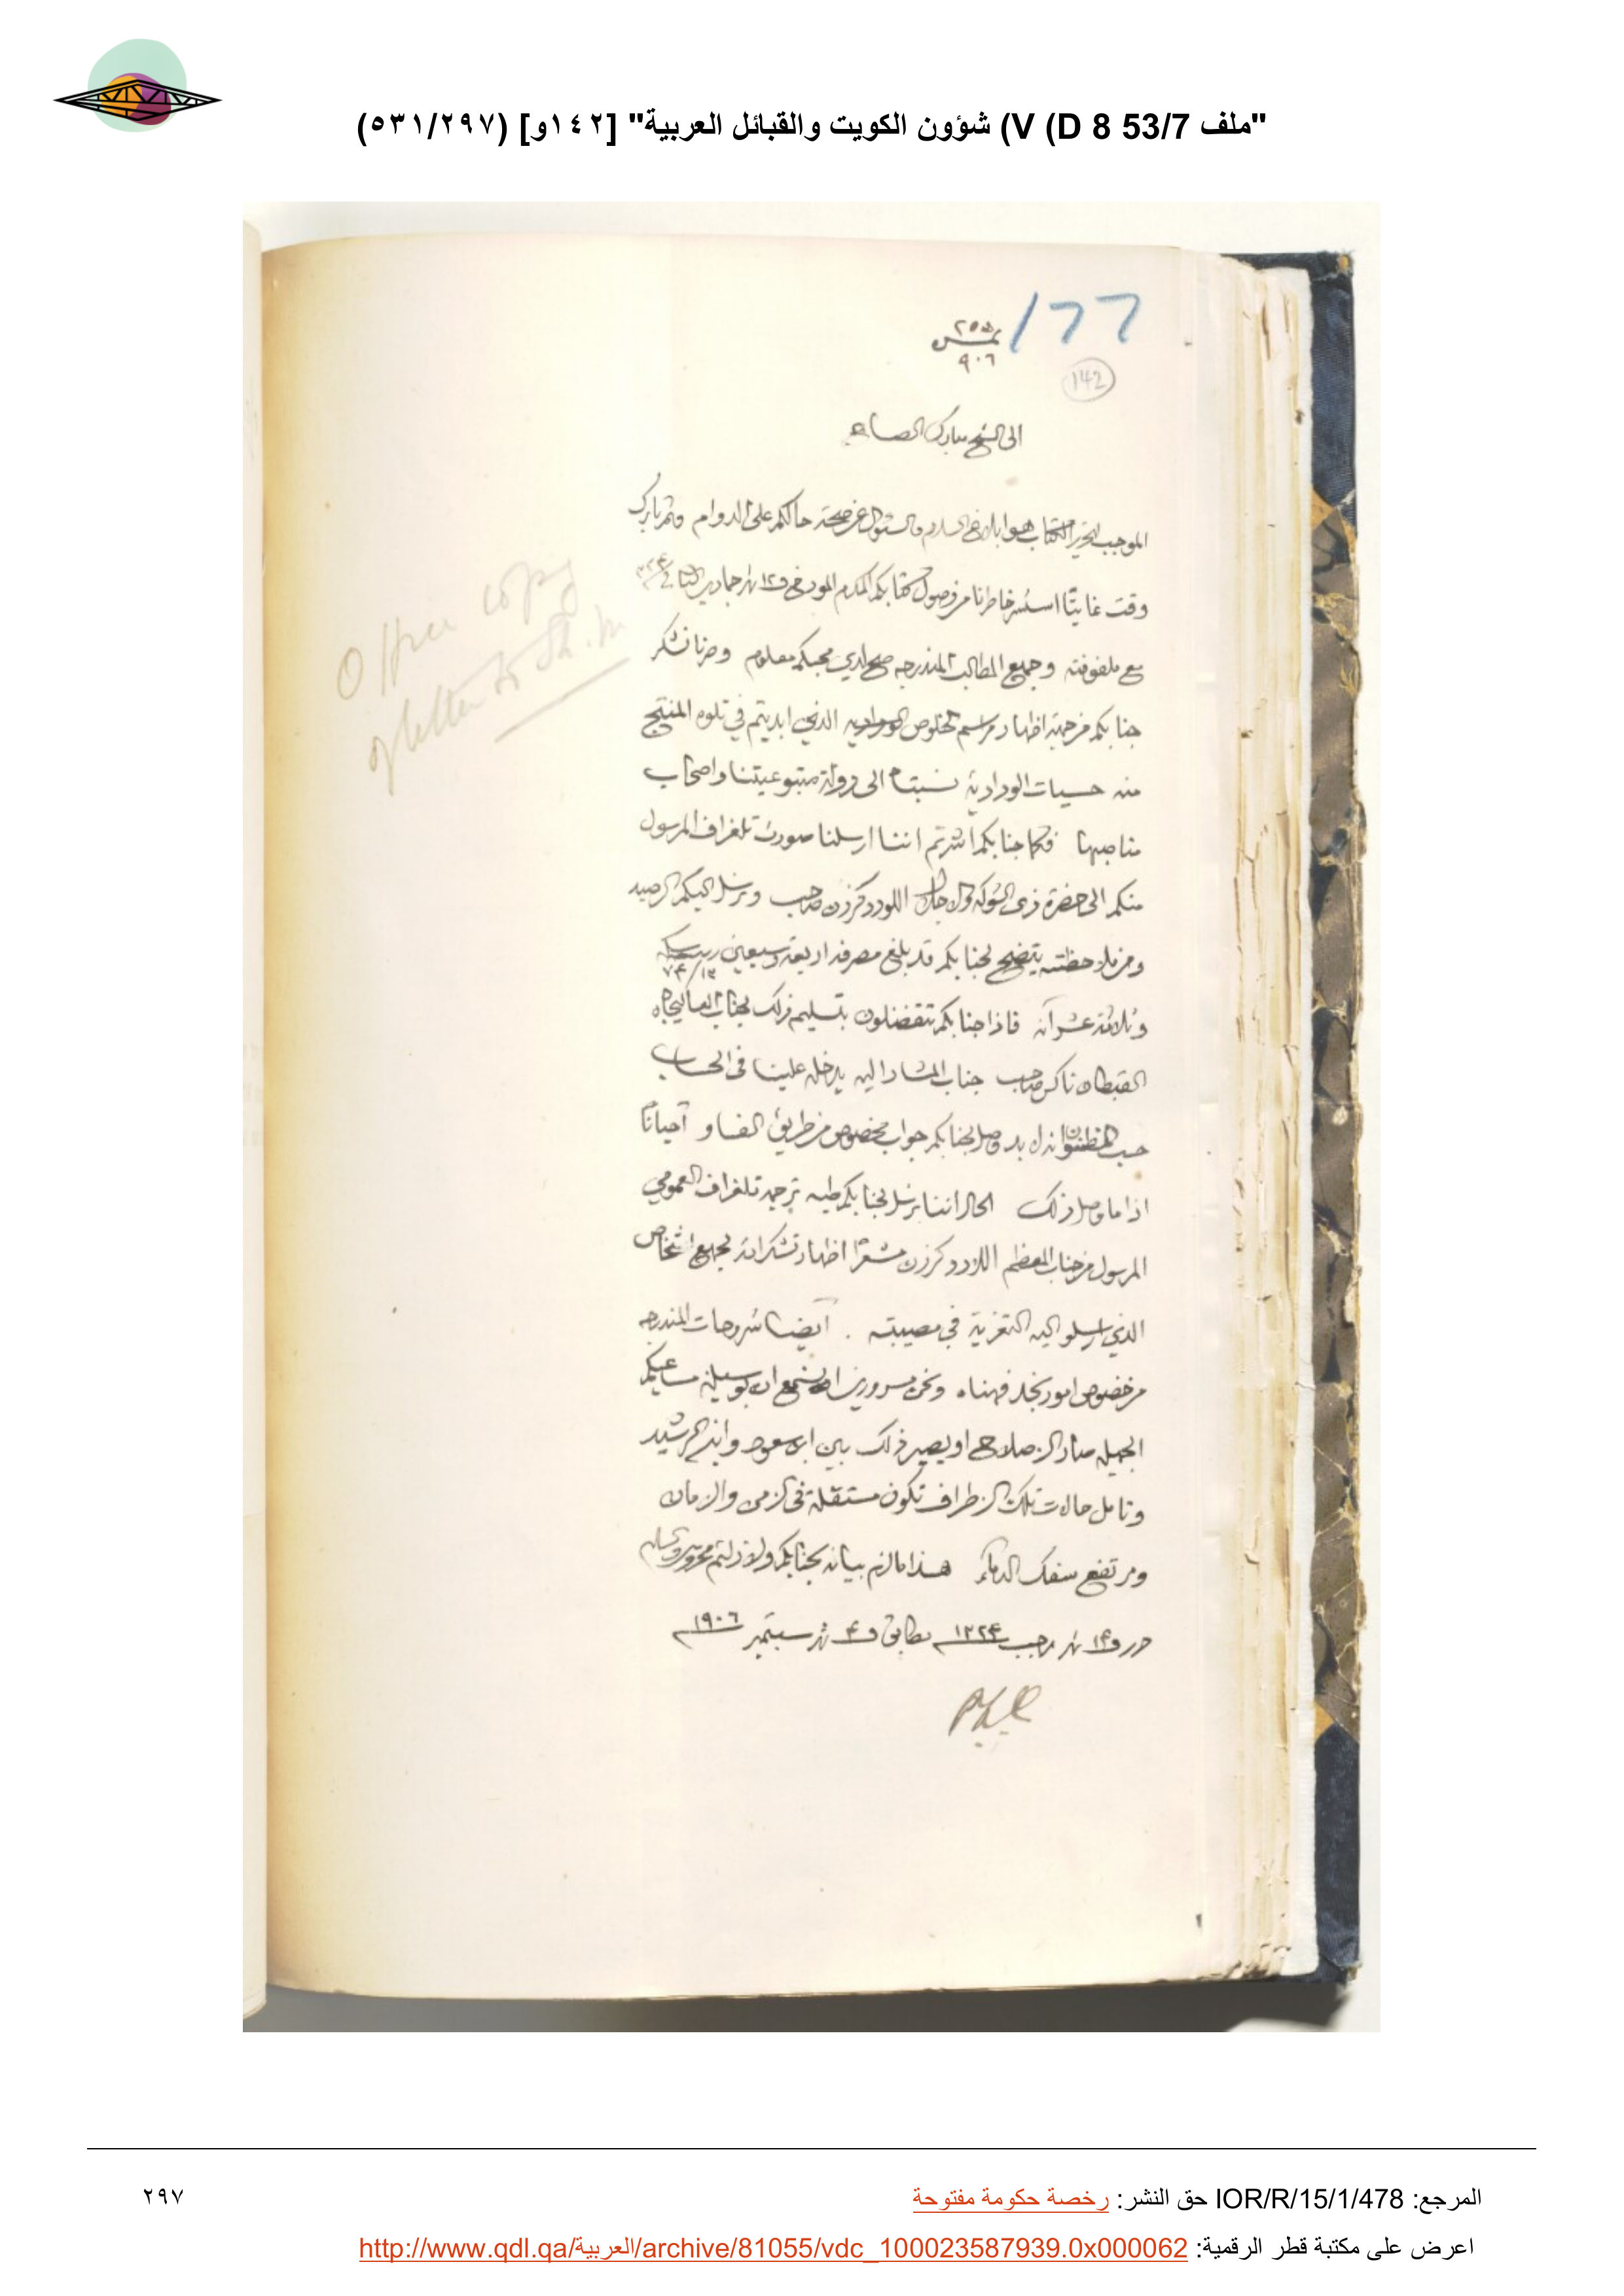 "ملف 53/7 V (D 8) شؤون الكويت والقبائل العربية" [١٤٢و] (٥٣١/٢٩٧)
177
نمبر ٢٥٥
٩٠٦
142
الى الشيخ مبارك الصباح
الموجب لتحرير الكتاب هو ابلاغ السلام والسئوال عن صحة حالكم على الدوام وثم بابرك
وقت غايتًا استسر خاطرنا من وصول كتابكم المكرم المورخ في ١٢ شهر جمادي الثاني ٣٢٤
مع ملفوفته وجميع المطالب المندرجه صح لدي محبكم معلوم وصرنا نشكر
جنابكم من جهة اظهار مراسم الخلوص الودادية الذي ابديتم في تلوه المنتج
منه حسيات الودادية نسبتاه الى دولة متبوعيتنا واصحاب
مناصبها فكما جنابكم اشرتم اننا ارسلنا صورت تلغراف المرسول
منكم الى حضرة ذي الشوكه والاجلال اللورد كرزن صاحب ونرسل اليكم الرصيد
ومن ملاحظته يتضح لجنابكم قد بلغ مصرفه اربعة وسبعين ربيه
٧٤/١٣
وثلاثة عشر آنه فاذا جنابكم تتفضلون بتسليم ذلك لجناب العاليجاه
القبطان ناكس صاحب جناب المشار اليه يدخله علينا في الحساب
حسب المظنون انه لا بد وصل لجنابكم جواب مخصوص من طريق الفاو احيانًا
اذا ما وصل ذلك الحال اننا نرسل لجنابكم طيه ترجمة تلغراف العمومي
المرسول من جناب المعظم اللارد كرزن مشعرًا اظهار تشكراته لجميع اشخاص
الذي ارسلو اليه التعزية في مصيبته . ايضا شروحات المندرجه
من خصوص امور نجد فهمناه ونحن مسرورين نسمع ان بوسيلة مساعيكم
الجميله صار الاصلاح او يصير ذلك بين ابن سعود وابن الرشيد
ونامل حالات تلك الاطراف تكون مستقلة في الامن والامان
ومرتفع سفك الدماء هذا ما لزم بيانه لجنابكم ولازلتم محروسين والسلام
حرر في ١٤ شهر رجب ١٣٢٤ مطابق في ٤ شهر سبتمبر ١٩٠٦
Office copy
of letter to Sh. M
المرجع: IOR/R/15/1/478 حق النشر: رخصة حكومة مفتوحة
٢٩٧
اعرض على مكتبة قطر الرقمية: http://www.qdl.qa/العربية/archive/81055/vdc_100023587939.0x000062